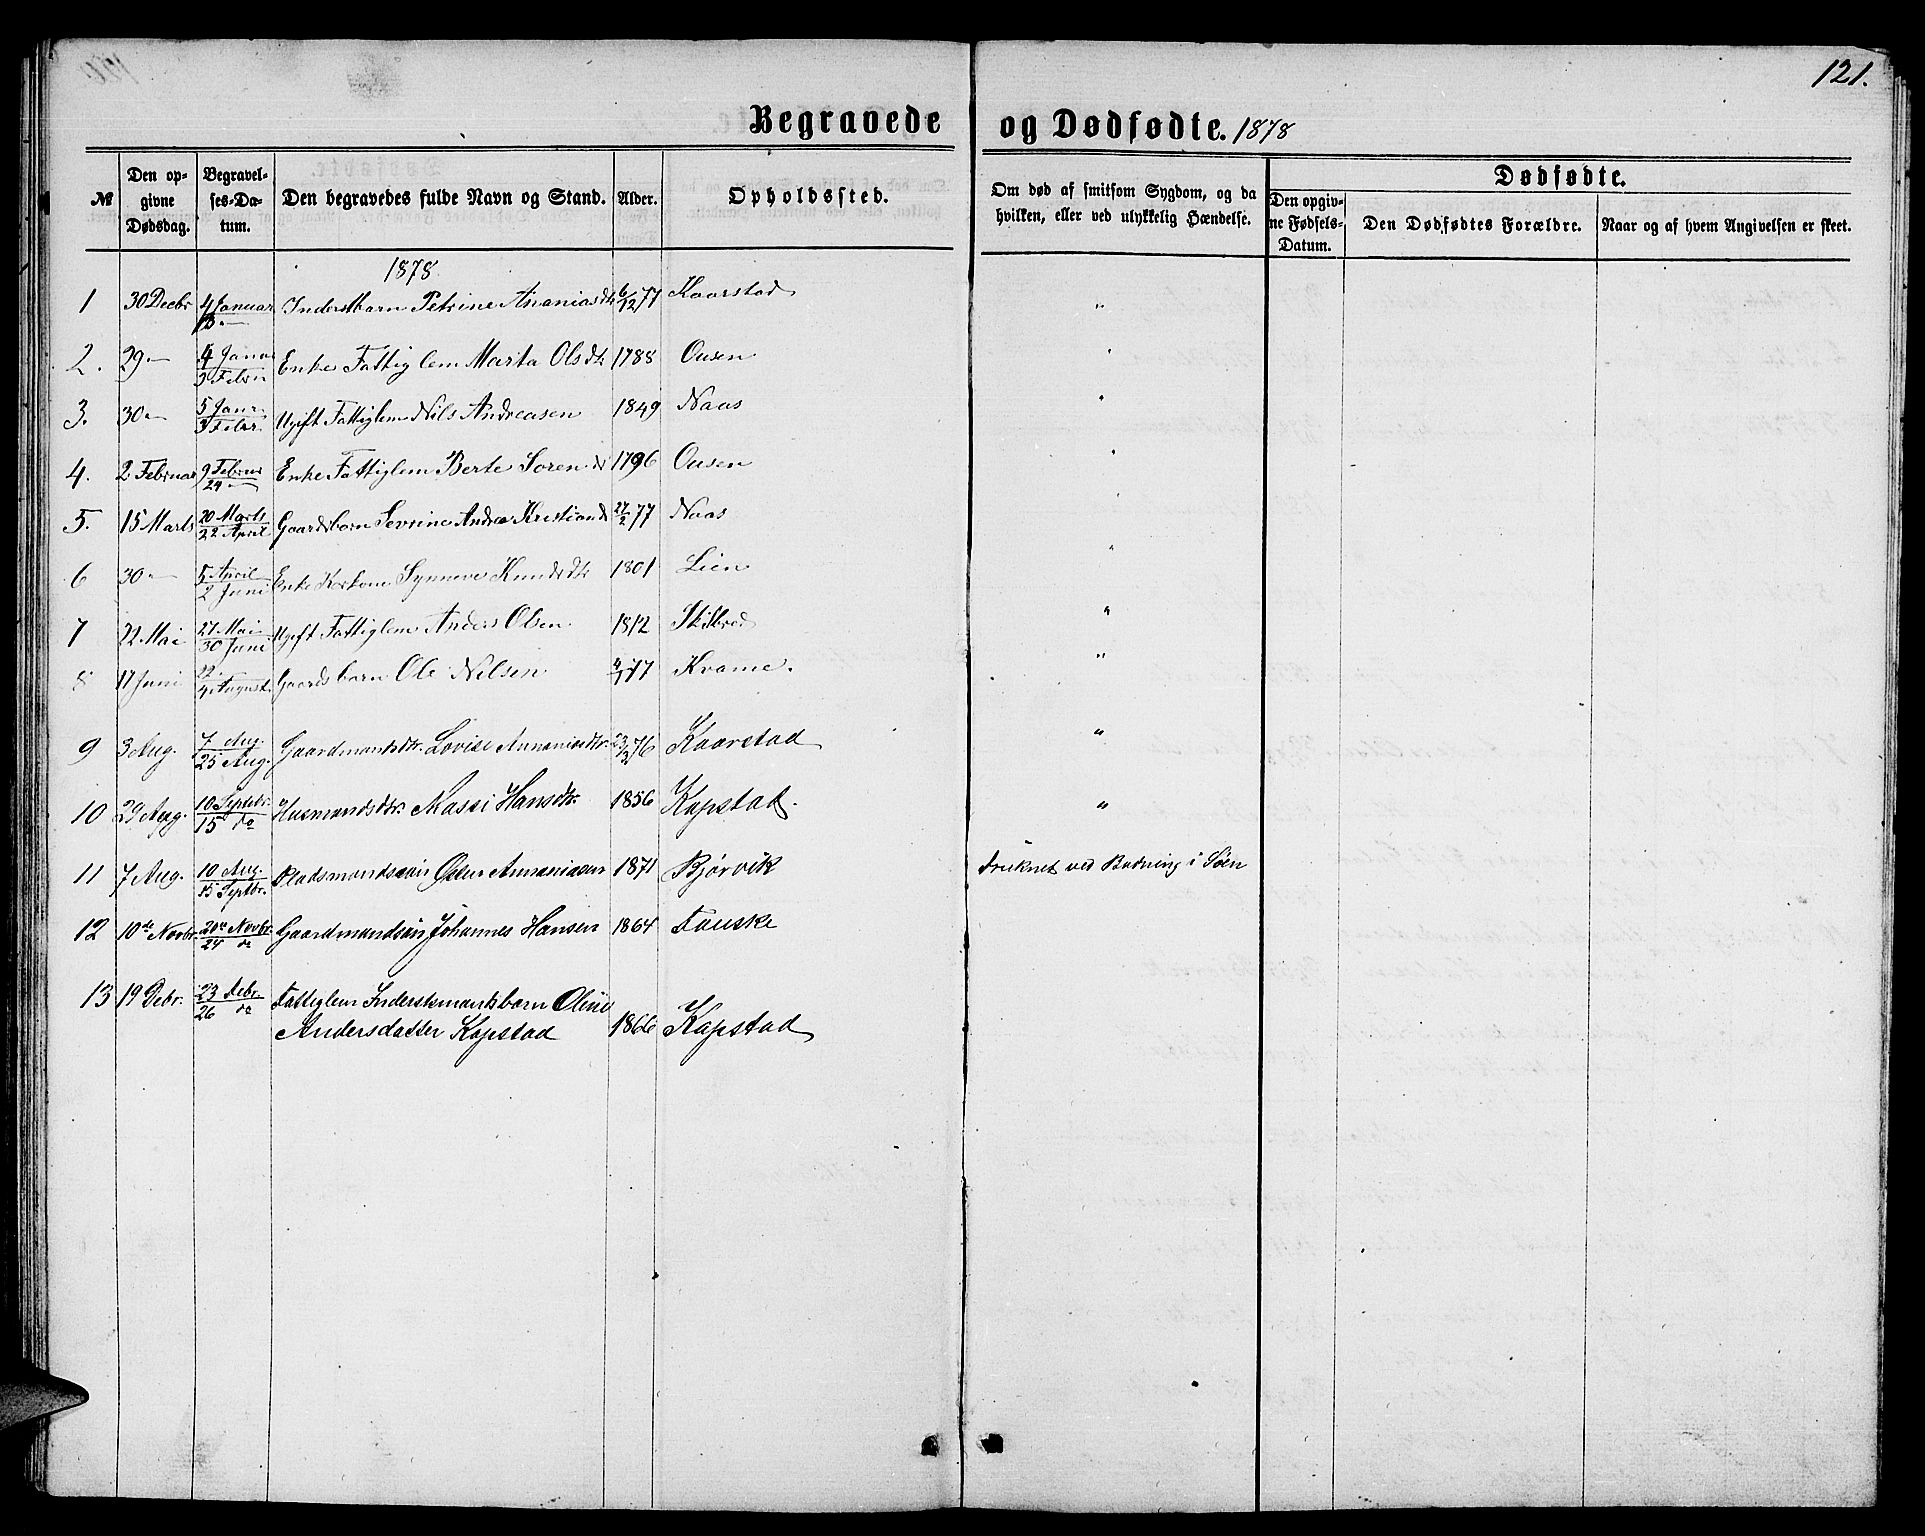 121.
Begravede og Dødfødte. 1878
№ Den opgivne Dødsdag. Begravelses-Datum. Den begravedes fulde Navn og Stand. Alder. Opholdssted. Om død af smitsom Sygdom, og da hvilken, eller ved ulykkelig Hændelse. Dødfødte. Den opgivne Fødsels-Datum. Den Dødfødtes Forældre. Naar og af hvem Angivelsen er skeet.
1878
1 30 Decbr 4 Januar Inderstbarn Petrine Ananiasdtr 6/12 77 Kaarstad "
2. 29 " 4 Janr 3 Febr Enke Fattiglem Marta Olsdtr 1788 Ousen "
3. 30 " 5 Janr. 3 Febr. Ugift Fattiglem Nils Andreasen 1849 Naas "
4. 2 Februar 9 Februar 24 " Enke Fattiglem Berte Sorensd 1796 Ousen "
5. 15 Marts 20 Marts 22 April Gaardsbarn Sevrine Andrea Kristiansd 27/2 77 Naas "
6 30 " 5 April 2 Juni Enke Synneve Knudsdtr 1801 Lien "
7 22 Mai 27 Mai 30 Juni Ugift Fattiglem Anders Olsen 1812 Skilbred "
8 17 Juni 22 " 4 August Gaardsbarn Ole Nilsen 77 Kvame. "
9 3 Aug. 7 Aug. 25 Aug. Gaardmandsdtr. Lovise Annaniasdtr. 76 Kaarstad "
10 29 Aug. 10 Septbr. 15 do Husmandsdtr. Massi Hansdtr. 1856 Kapstad. "
11 7 Aug. 10 Aug. 15 Septbr. Pladsmandssøn Annaniasen 1871 Bjørvik druknet ved Badning i Søen
12 10de Novbr. 20de Novbr. 24 do Gaardmandssøn Johannes Hansen 1864 Fauske
13 19 Debr. 23 Debr. 26 do Fattiglem Inderstsmandsbarn Oline
Andersdatter Kapstad 1866 Kapstad